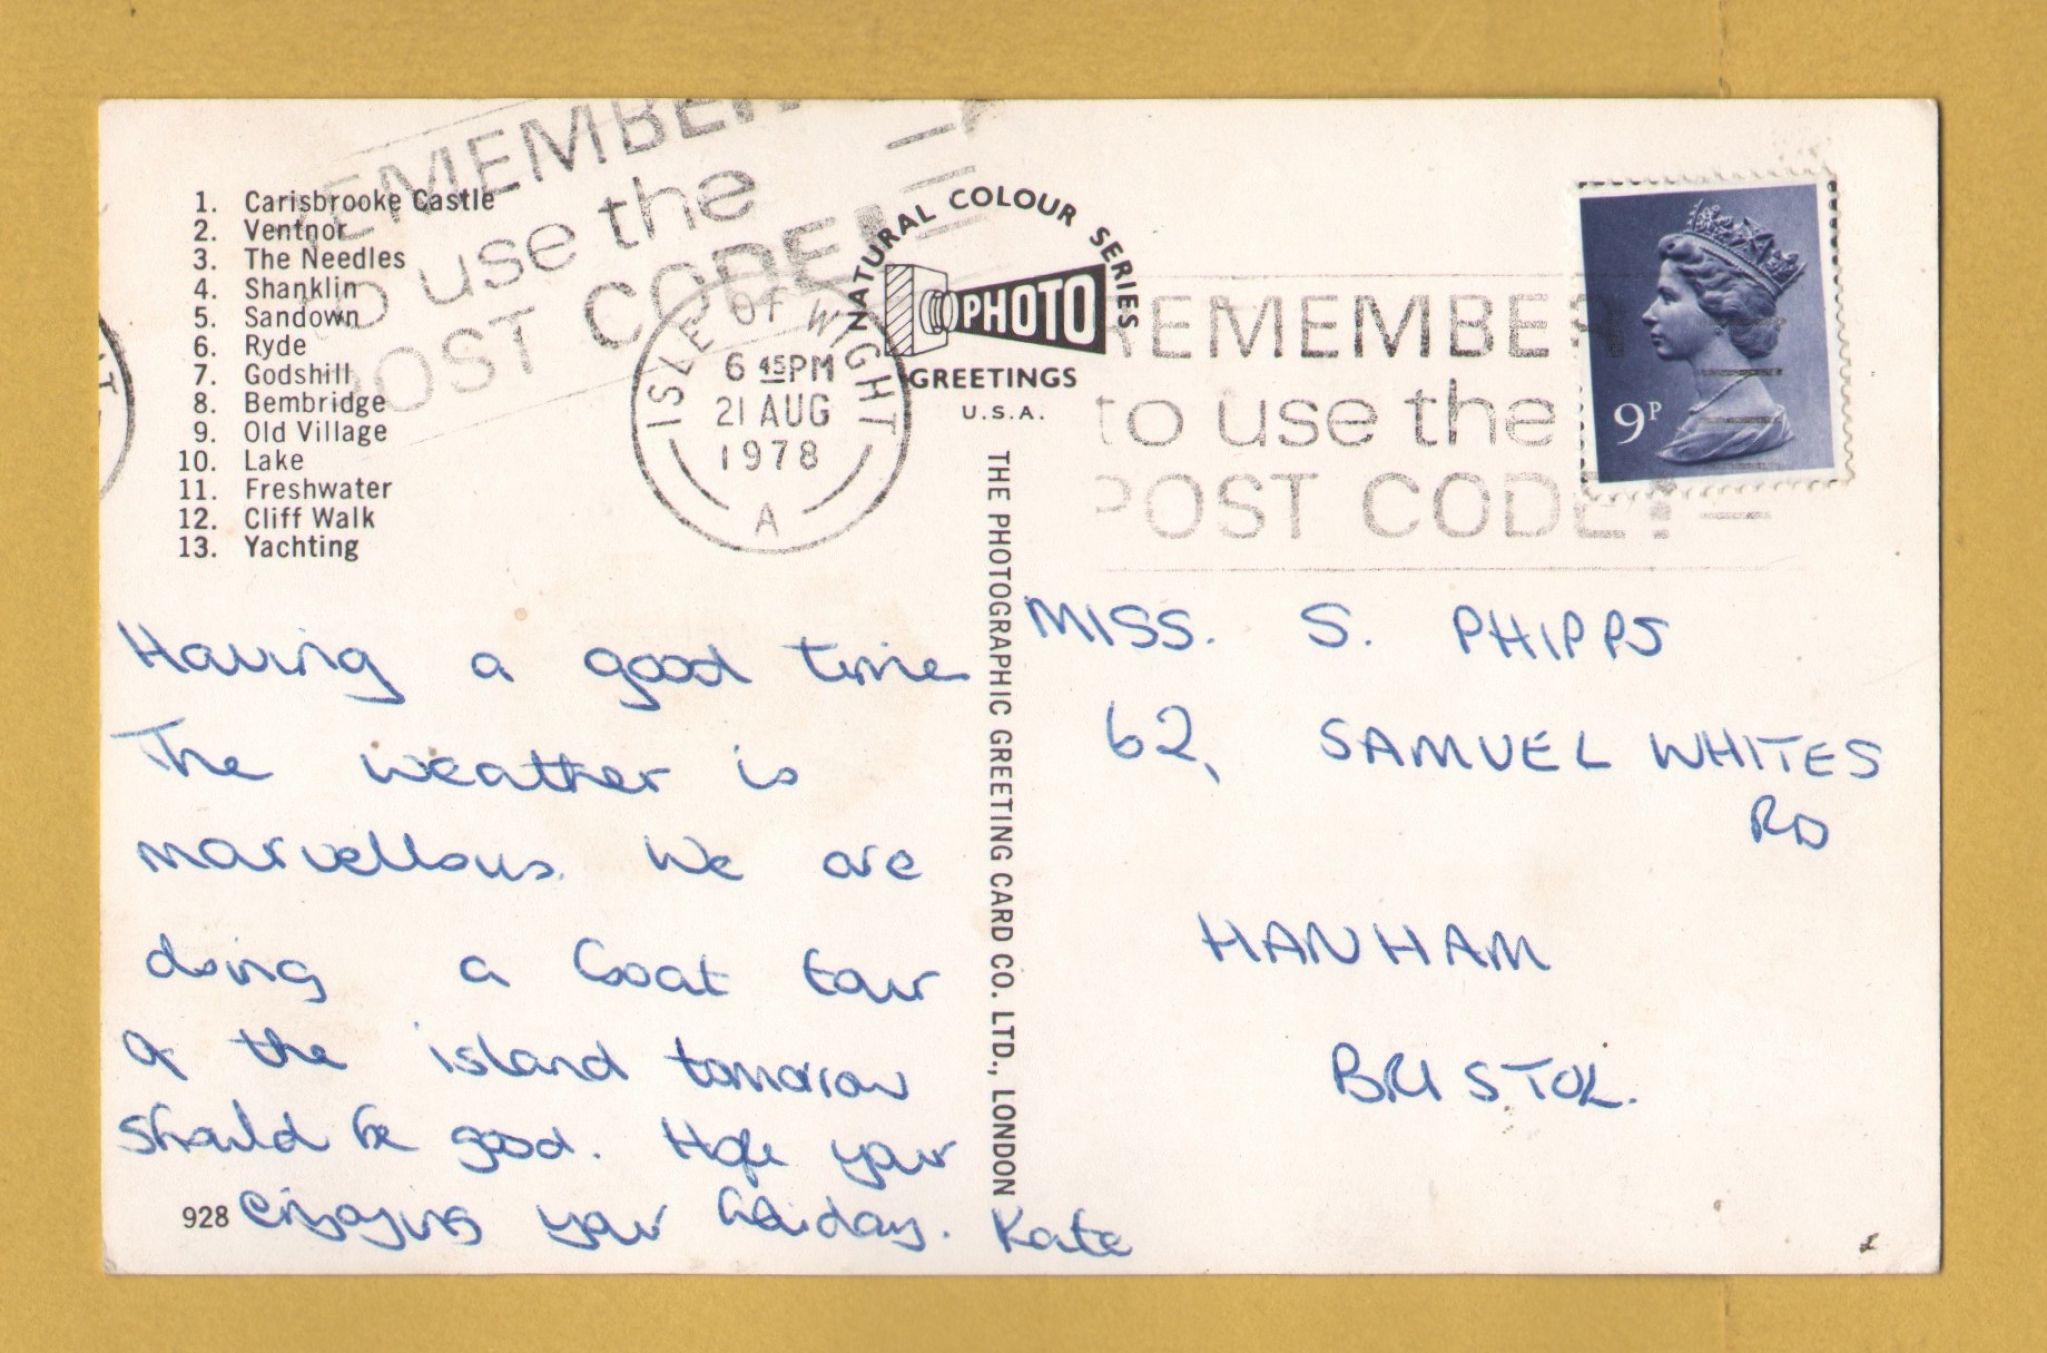 REMEMBER
to use the
POST CODE!
1. Carisbrooke Castle
2. Ventnor
3. The Needles
4. Shanklin
5. Sandown
6. Ryde
7. Godshill
8. Bembridge
9. Old Village
10. Lake
11. Freshwater
12. Cliff Walk
13. Yachting
ISLE OF WIGHT
6 45PM
21 AUG
1978
A
NATURAL COLOUR SERIES
PHOTO
GREETINGS
U.S.A.
REMEMBER
to use the
POST CODE!
9P
THE PHOTOGRAPHIC GREETING CARD CO. LTD., LONDON
Having a good time
The weather is
marvellous. We are
doing a boat tour
of the island tomorrow
should be good. Hope your
enjoying your holiday. Kate
928
MISS. S. PHIPPS
62, SAMUEL WHITES
RD
HANHAM
BRISTOL.